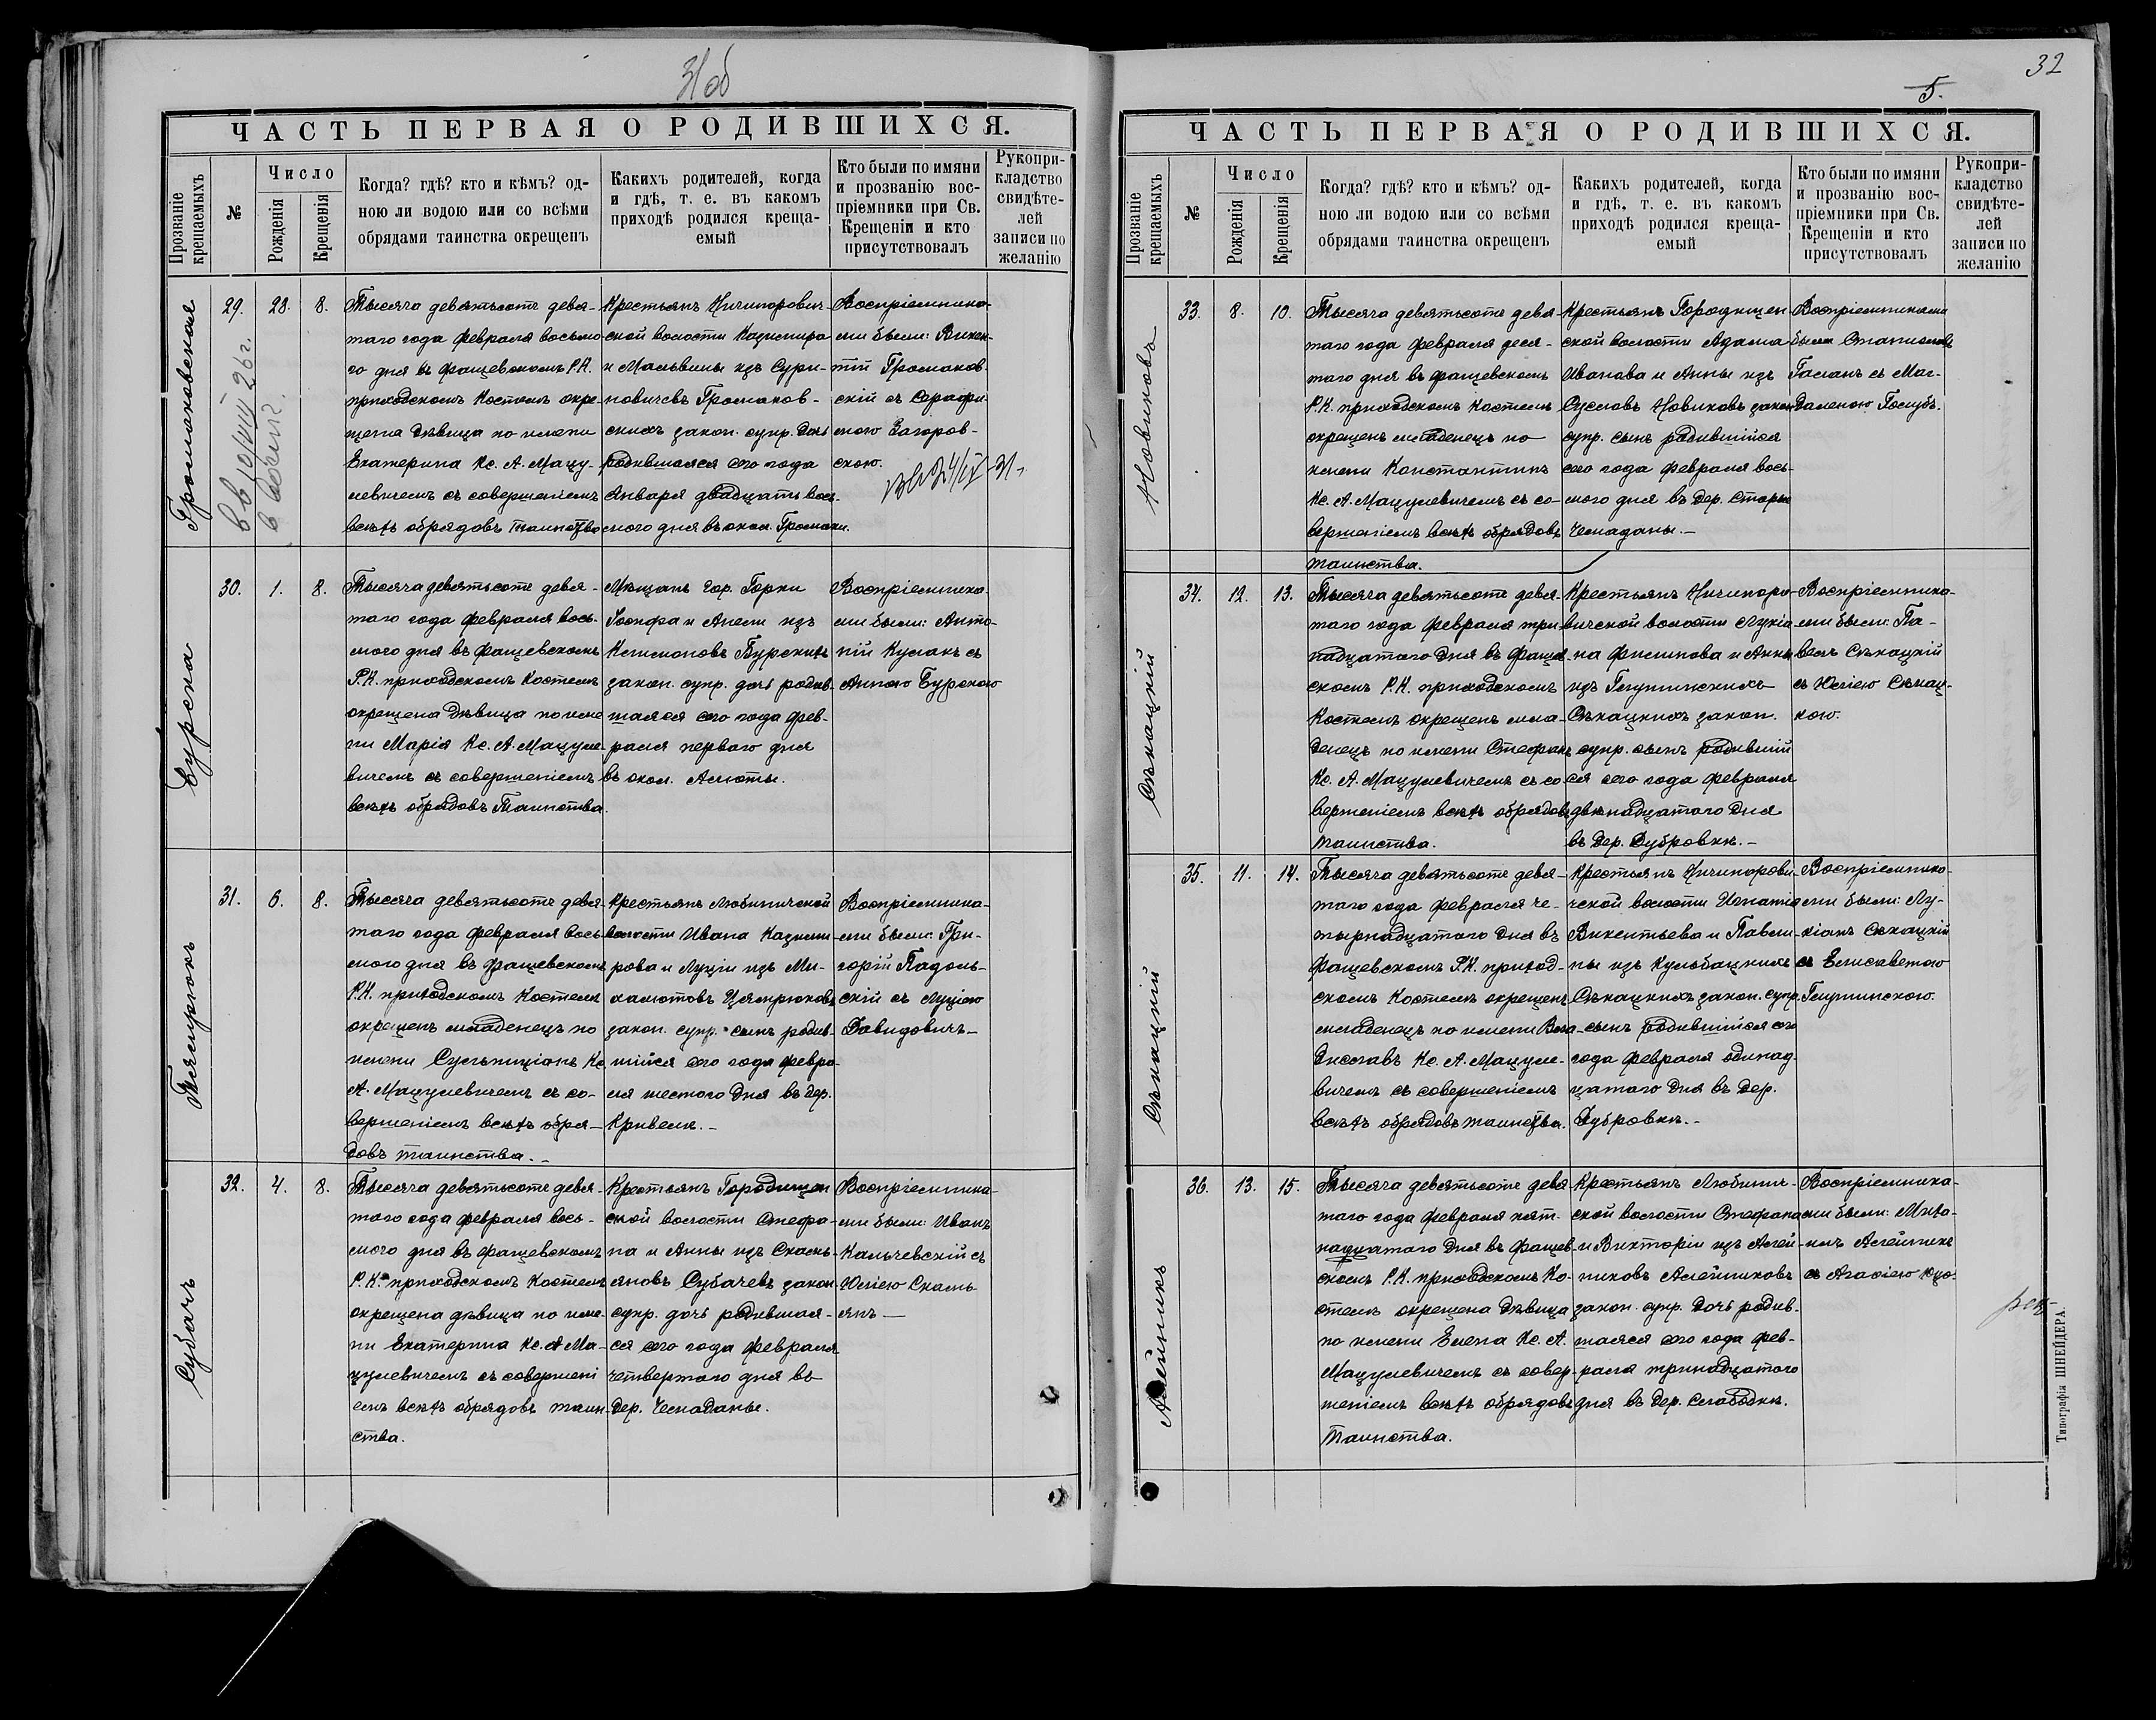 31об
ЧАСТЬ ПЕРВАЯ О РОДИВШИХСЯ.
Прозваніе крещаемыхъ
№
Число
Рожденія
Крещенія
Когда? гдѣ? кто и кѣмъ? од-
ною ли водою или со всѣми
обрядами таинства окрещенъ
Какихъ родителей, когда
и гдѣ, т. е. въ какомъ
приходѣ родился креща-
емый
Кто были по имяни
и прозванію вос-
пріемники при Св.
Крещеніи и кто
присутствовалъ
Рукопри-
кладство
свидѣте-
лей
записи по
желанію
Громаковская
29. 28. 8.
Тысяча девятьсотъ девя-
таго года февраля восьмо
го дня въ Фащевскомъ Р.К.
приходскомъ костелѣ окре-
щена дѣвица по имени
Екатерина Кс. А. Мацу-
левичемъ съ совершеніемъ
всѣхъ обрядовъ таинства
Крестьянъ Ничипорович-
ской волости Казимира
и Мальвины изъ Сури-
новичевъ Громаков-
скихъ закон. супр. дочь
родившаяся сего года
Января двадцать вось-
мого дня въ окол. Громаки.
Воспріемника-
ми были: Викен-
тій Громаков-
скій съ Серафи-
мою Загоров-
скою.
Бурска
30. 1. 8.
Тысяча девятьсотъ девя-
таго года февраля вось-
мого дня въ Фащевскомъ
Р.К. приходскомъ костелѣ
окрещена дѣвица по име
ни Марія Кс. А. Мацуле
вичемъ съ совершеніемъ
всѣхъ обрядовъ Таинства.
Мѣщанъ гор. Горки
Іосифа и Анели изъ
Климоновъ Бурскихъ
закон. супр. дочь родив-
шаяся сего года фев-
раля перваго дня
въ окол. Асмоты.
Воспріемника-
ми были: Анто-
ній Кулакъ съ
Анною Бурскою
31. 6. 8.
Тысяча девятьсотъ девя-
таго года февраля вось-
мого дня въ Фащевскомъ
Р.К. приходскомъ костелѣ
окрещенъ младенецъ по
имени Сульпиціанъ Кс
А. Мацулевичемъ съ со-
вершеніемъ всѣхъ обря-
довъ таинства.-
Крестьянъ Любиничской
волости Ивана Казими-
рова и Луціи изъ Ми-
халютовъ Цемрюковъ
закон. супр. сынъ родив-
шійся сего года февра-
ля шестого дня въ дер.
Кривели.-
Воспріемника-
ми были: Гри-
горій Падоль-
скій съ Луціею
Давидовичъ-
Субачъ
32. 4. 8.
Тысяча девятьсотъ девя-
таго года февраля вось-
мого дня въ Фащевскомъ
Р.К. приходскомъ костелѣ
окрещена дѣвица по име-
ни Екатерина Кс. А Ма-
цулевичемъ съ совершені
емъ всѣхъ обрядовъ таин-
ства.
Крестьянъ Городищен
ской волости Стефа-
на и Анны изъ Скамь-
яновъ Субачевъ закон
супр. дочь родившая-
ся сего года февраля
четвертаго дня въ
дер. Чемаданы.
Воспріемника-
ми были: Иванъ
Кальчевскій съ
Юліею Скамь-
янъ-
32
5.
ЧАСТЬ ПЕРВАЯ О РОДИВШИХСЯ.
Прозваніе крещаемыхъ
№
Число
Рожденія
Крещенія
Когда? гдѣ? кто и кѣмъ? од-
ною ли водою или со всѣми
обрядами таинства окрещенъ
Какихъ родителей, когда
и гдѣ, т. е. въ какомъ
приходѣ родился креща-
емый
Кто были по имяни
и прозванію вос-
пріемники при Св.
Крещеніи и кто
присутствовалъ
Рукопри-
кладство
свидѣте-
лей
записи по
желанію
Новиковъ
33. 8. 10.
Тысяча девятьсотъ девя
таго года февраля деся-
таго дня въ Фащевскомъ
Р.К. приходскомъ костелѣ
окрещенъ младенецъ по
имени Константинъ
Кс. А. Мацулевичемъ съ со-
вершеніемъ всѣхъ обрядовъ
таинства.
Крестьянъ Городищен
ской волости Адама
Иванова и Анны изъ
Сусловъ Новиковъ закон
супр. сынъ родившійся
сего года февраля вось-
мого дня въ дер. Старые
Чемаданы.-
Воспріемниками
были Станиславъ
Галанъ съ Маг-
даленою Голубъ.
Сѣкацкій
34. 12. 13.
Тысяча девятьсотъ девя-
таго года февраля три-
надцатаго дня въ Фащев
скомъ Р.К. приходскомъ
костелѣ окрещенъ мла-
денецъ по имени Стефанъ
Кс. А. Мацулевичемъ съ со
вершеніемъ всѣхъ обрядовъ
таинства.
Крестьянъ Ничипоро-
вичской волости Лукіа-
на Филипова и Анны
изъ Глушинскихъ
Сѣкацкихъ закон.
супр. сынъ родившій
ся сего года февраля
двѣнадцатаго дня
въ дер. Дубровкѣ.-
Воспріемника-
ми были: Па-
велъ Сѣкацкій
съ Юліею Сѣкац-
кою.
Сѣкацкій
35. 11. 14.
Тысяча девятьсотъ девя-
таго года февраля че-
тырнадцатаго дня въ
Фащевскомъ Р.К. приход-
скомъ костелѣ окрещенъ
младенецъ по имени Вла-
диславъ Кс. А. Мацуле-
вичемъ съ совершеніемъ
всѣхъ обрядовъ таинства.
Крестьянъ Ничипорови
чской волости Игнатія
Викентьева и Павли-
ны изъ Кульбацкихъ
Сѣкацкихъ закон. супр.
сынъ родившійся сего
года февраля одинад
цатаго дня въ дер.
Дубровкѣ.-
Воспріемника-
ми были: Лу-
кіанъ Сѣкацкій
съ Елисаветою
Глушинскою.
Алейникъ
36. 13. 15.
Тысяча девятьсотъ девя
таго года февраля пят-
надцатаго дня въ Фащев-
скомъ Р.К. приходскомъ ко-
стелѣ окрещена дѣвица
по имени Елена Кс. А.
Мацулевичемъ съ совер-
шеніемъ всѣхъ обрядовъ
таинства.
Крестьянъ Любинич-
ской волости Стефана
и Викторіи изъ Алей-
никовъ Алейниковъ
закон. супр. дочь родив-
шаяся сего года фев-
раля тринадцатаго
дня въ дер. Слабодкѣ.
Воспріемника-
ми были: Миха-
илъ Алейникъ
Типографія ШНЕЙДЕРА.